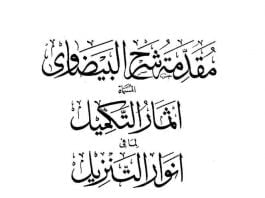 مُقَدِّمَةُ شَرْحِ الْبَيْضَاوِي
المُسَمَّاة
اثمَارُ التَّكمِيل
لِمَا فِي
انوارِ التَّنزِيل